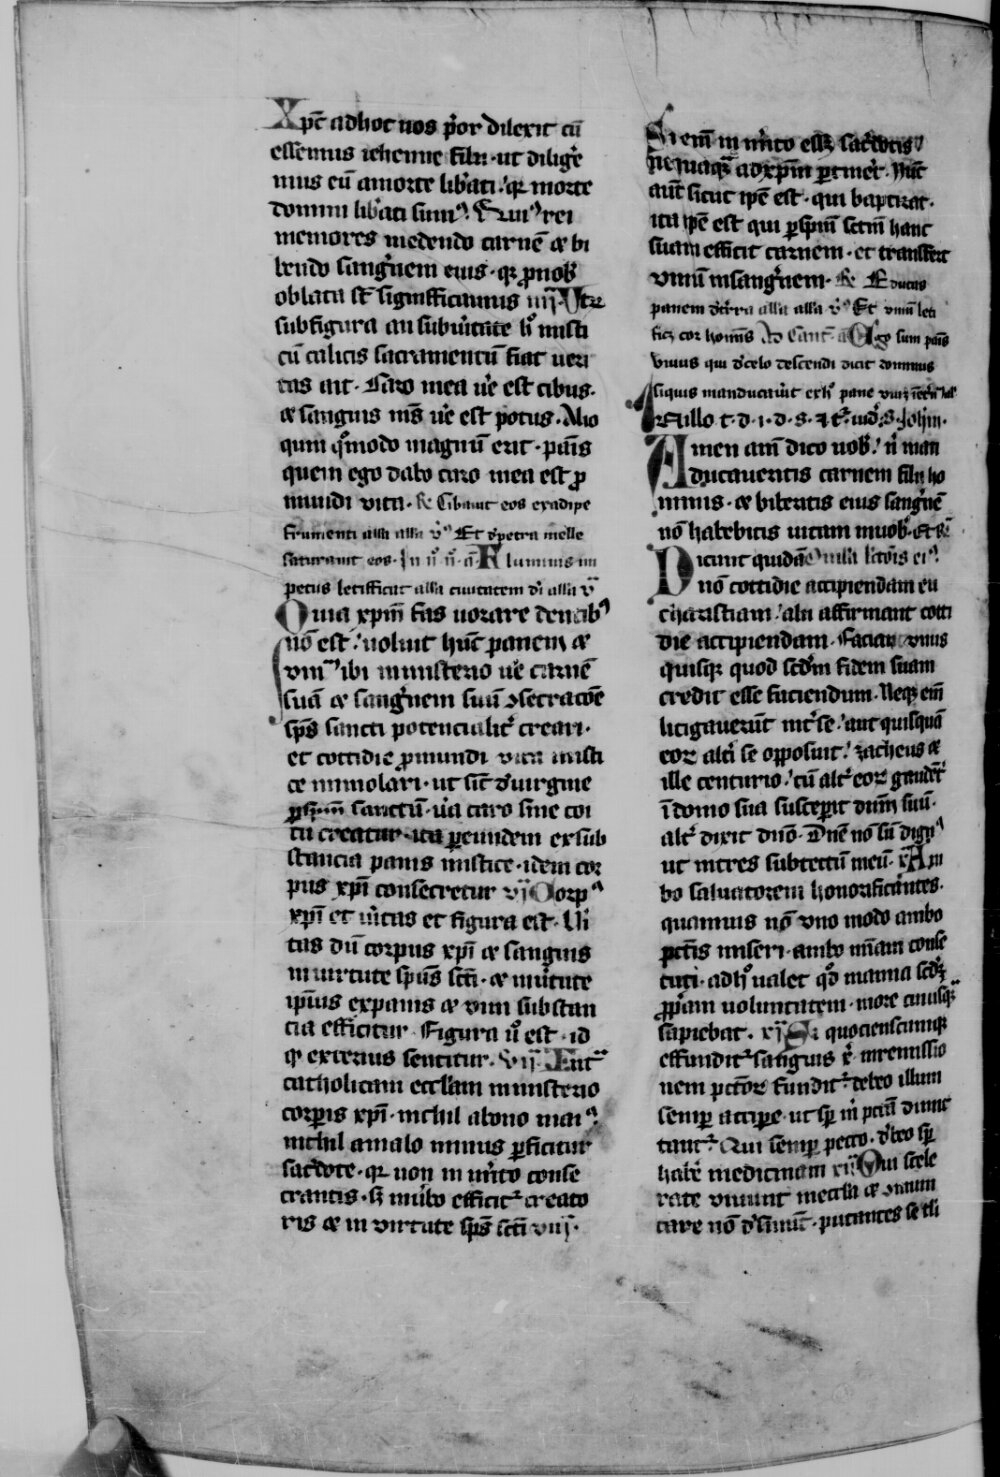 Xpc̄ adhoc nos p̓or dilexit cū
essemus iehenne filii · ut dilige̓
mus eū amorte lib̓ati · qꝛ morte
domini lib̓ati sumꝰ. Cuiꝰ rei
memores inedendo carnē ⁊ bi
bendo sang̓nem eius · qꝛ ꝓnobꝭ
oblata sт̄ significamus iiij Vtꝝ
subfigura an subuїtate h̓ misti
cū calicis sacramentū fiat ueri
tas ait · Caro mea ue̓ est cibus ·
⁊ sanguis ms̄ ue̓ est potus · Alio
quin qͦmodo magnū erit · panis
quem ego dabo caro mea est ꝓ
mundi vita · ꝶ Cibauit eos exadipe
frumenti alla alla v̓ Et d̓petra melle
saturauit eos · In ii̓ n̓ · a̓ · Fluminis im
petus letificat alla ciuitatem di̓ alla v̓
Quia xpm̄ fas uorare dentibꝰ
nō est · uoluit hūc panem ⁊
vinū ibi ministerio ue̓ carnē
suā ⁊ sang̓nem suū ꝯsecracōe
sp̄s sancti potencialit̓ creari ·
et cottidie ꝓmundi vita misti
ce immolari · ut sic̄ d̓uirgine
ꝑsp̄m sanctū · u̓a caro sine coi
tu creatur · ita ꝑeundem exsub
stancia panis mistice · idem cor
pus xpī consecretur vij Corpꝰ
xpī et u̓itas et figura est · Ve̓i
tas dū corpus xpī ⁊ sanguis
inuirtute sp̄us sc̄ti · ⁊ inu̓tute
ip̄ius expanis ⁊ vini substan
cia efficitur · Figura u̓ est · id
qꝛ exterius sentitur · Vij Int̓
catholicam eccl̄am ministerio
corꝑis xpī · nichil abono maiꝰ
nichil amalo minus ꝑficitur
sacd̓ote · qꝛ non in m̓ito conse
crantis · sꝫ inu̓bo efficit̓ creato
ris ⁊ in virtute sp̄s sc̄ti viij ·
Si em̄ in m̓ito eēt sacd̓otis
nequaqͣ adxpm̄ ꝑtine̓t · Nūc
aūt sicut ip̄e est · qui baptizat ·
ita ip̄e est qui ꝑsp̄m sc̄tm̄ hanc
suam efficit carnem · et transfert
vinū insang̓nem · ꝶ Educas
panem d̓t̓ra alla alla v̓ Et vinū leti
ficꝫ cor homīs Ad Cant̄ a̓ Ego sum pāis
viuus qui d̓celo descendi dicit dominus
siquis manducau̓it exh̓ pane
In illo t · d · i · d · s · ⁊ t̓ · iud̓ · s · Iohm̄ ·
Amen am̄ dico uobꝭ · n̓ man
ducaueritis carnem filii ho
minis · ⁊ biberitis eius sang̓nē
nō habebitis uitam inuobꝭ · et ꝶ
Dicunt quidā Omīla lc̄oīs eiꝰ
nō cottidie accipiendam eu
charistiam · alii affirmant cotti
die accipiendam · Faciat vnus
quisqꝫ quod scd̄m fidem suam
credit esse faciendum · Neqꝫ em̄
litigauerūt int̓se · aut quisquā
eoꝝ alt̓i se opposuit · zacheus ⁊
ille centurio · cū alt̓ eoꝝ gaudēt̓
ī domo sua susceperit dūm suū ·
alt̓ dixit dūo · Dn̄e nō sū dignꝰ
ut intres subtectū meū · x Am
bo saluatorem honorificantes ·
quamuis nō vno modo ambo
pctīs miseri · ambo mīam conse
cuti · adh̓ ualet qd̄ manna scd̄ꝫ
ꝓp̓iam uoluntatem · more cuiusqꝫ
sapiebat · xj Si quocienscumqꝫ
effundit̓ sanguis x̓ · inremissio
nem pctoꝝ fundit̓ · debeo illum
semꝑ accipe̓ · ut sꝑ m̓ pctā dimit
tant̓ · Qui semꝑ pecco · d̓beo sꝑ
habe̓ medicinam xij Qui scele
rate viuunt
care nō d̓sinūt · putantes se tli